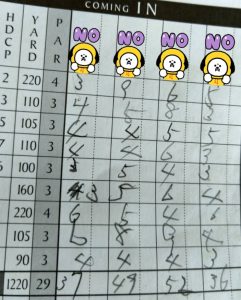 COMING IN
HDCP YARD PAR NO NO NO NO
2 220 4 3 9 6 5
3 110 3 4 5 8 3
5 105 3 4 4 5 5
7 110 3 4 4 6 3
6 100 3 3 5 4 3
160 3 3 5 6 4
220 4 6 5 4 6
105 3 8 3 4
90 3 4 4 4 3
1220 29 37 49 52 36